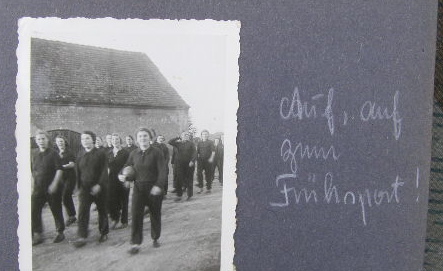 Auf, auf
zum
Frühsport!